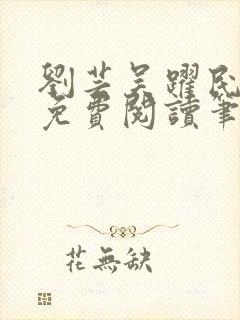 劉芸吴躍民
免費閱讀筆
花無缺